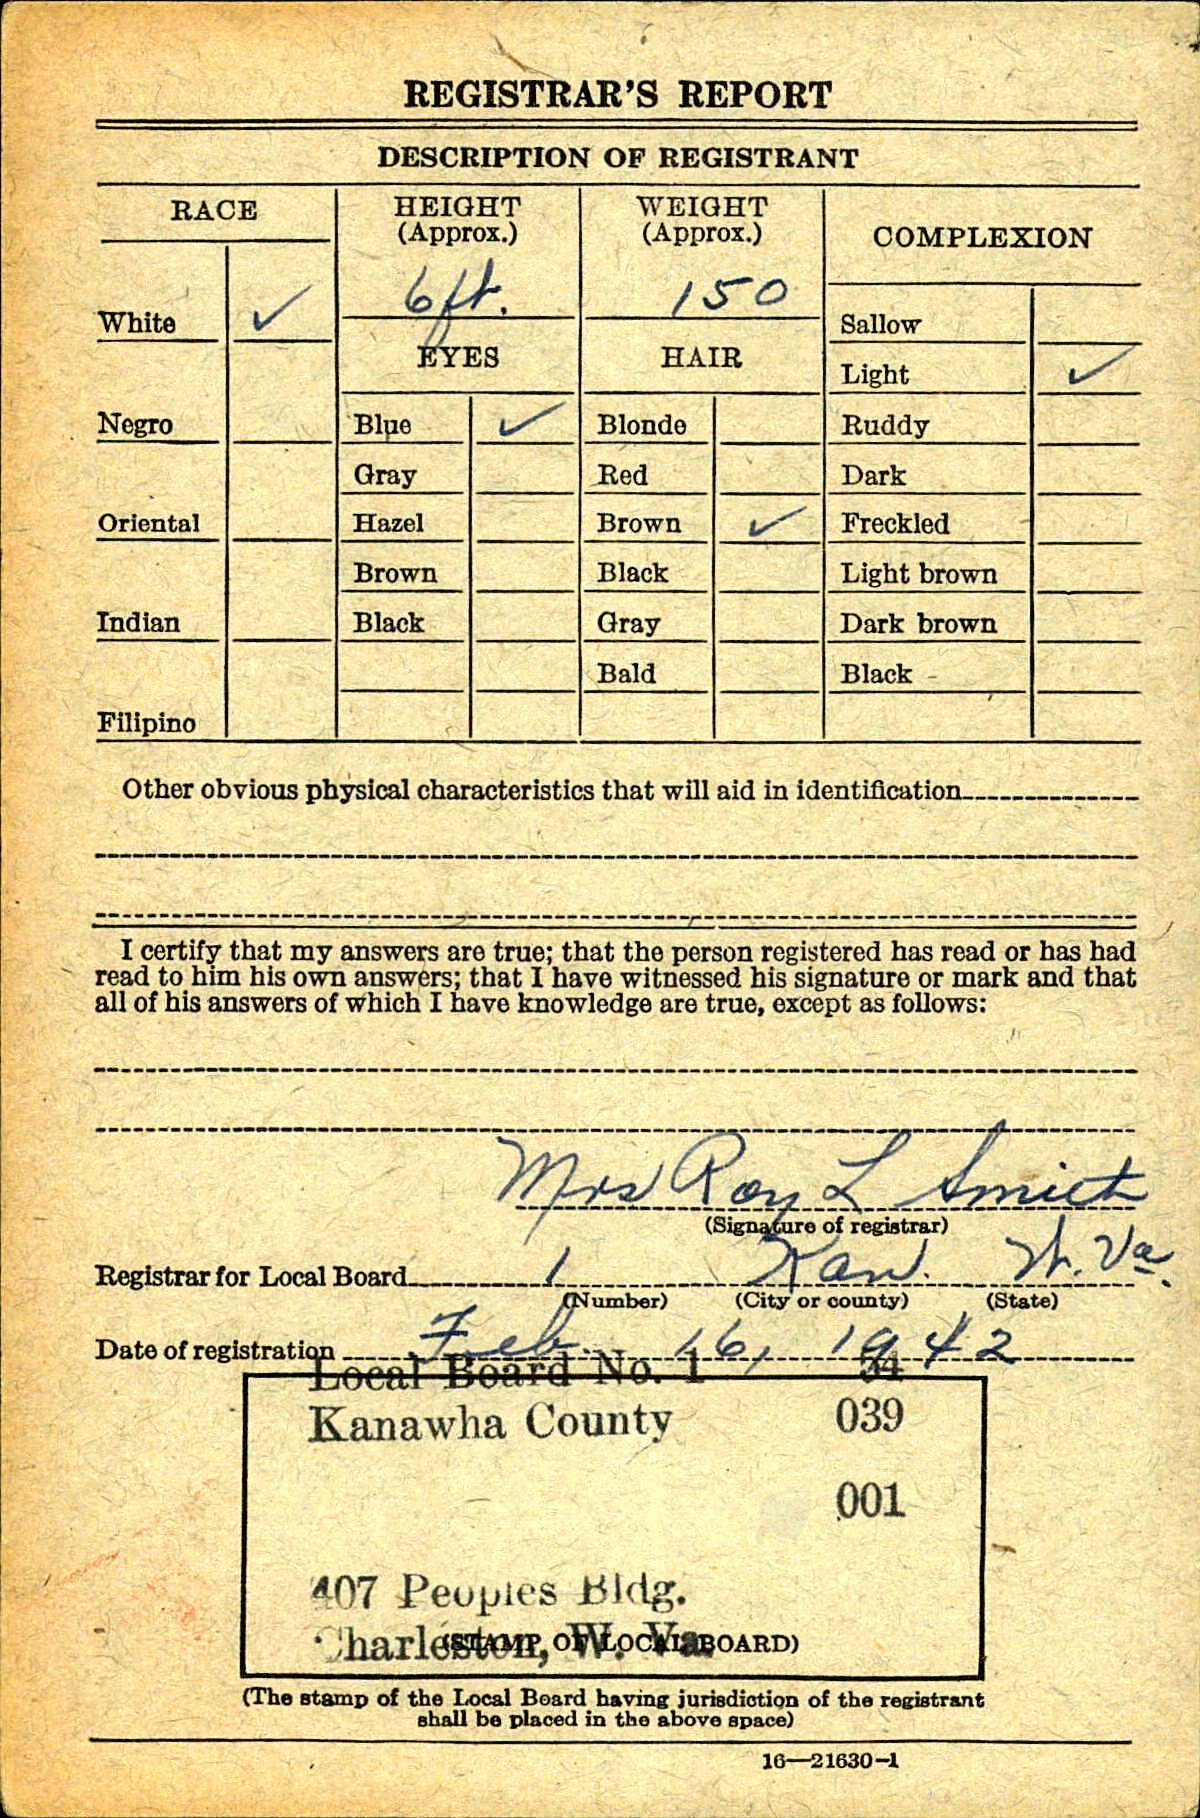 REGISTRAR'S REPORT
DESCRIPTION OF REGISTRANT
RACE
HEIGHT
(Approx.)
WEIGHT
(Approx.)
COMPLEXION
6 ft.
150
White ✓
Sallow
EYES
HAIR
Light ✓
Negro
Blue ✓
Blonde
Ruddy
Gray
Red
Dark
Oriental
Hazel
Brown ✓
Freckled
Brown
Black
Light brown
Indian
Black
Gray
Dark brown
Bald
Black
Filipino
Other obvious physical characteristics that will aid in identification
I certify that my answers are true; that the person registered has read or has had
read to him his own answers; that I have witnessed his signature or mark and that
all of his answers of which I have knowledge are true, except as follows:
Mrs Roy L Smith
(Signature of registrar)
Registrar for Local Board 1 Kan. W. Va.
(Number) (City or county) (State)
Date of registration Feb. 16, 1942
Local Board No. 1 54
Kanawha County 039
001
407 Peoples Bldg.
Charleston, W. Va.
(STAMP OF LOCAL BOARD)
(The stamp of the Local Board having jurisdiction of the registrant
shall be placed in the above space)
16—21630-1